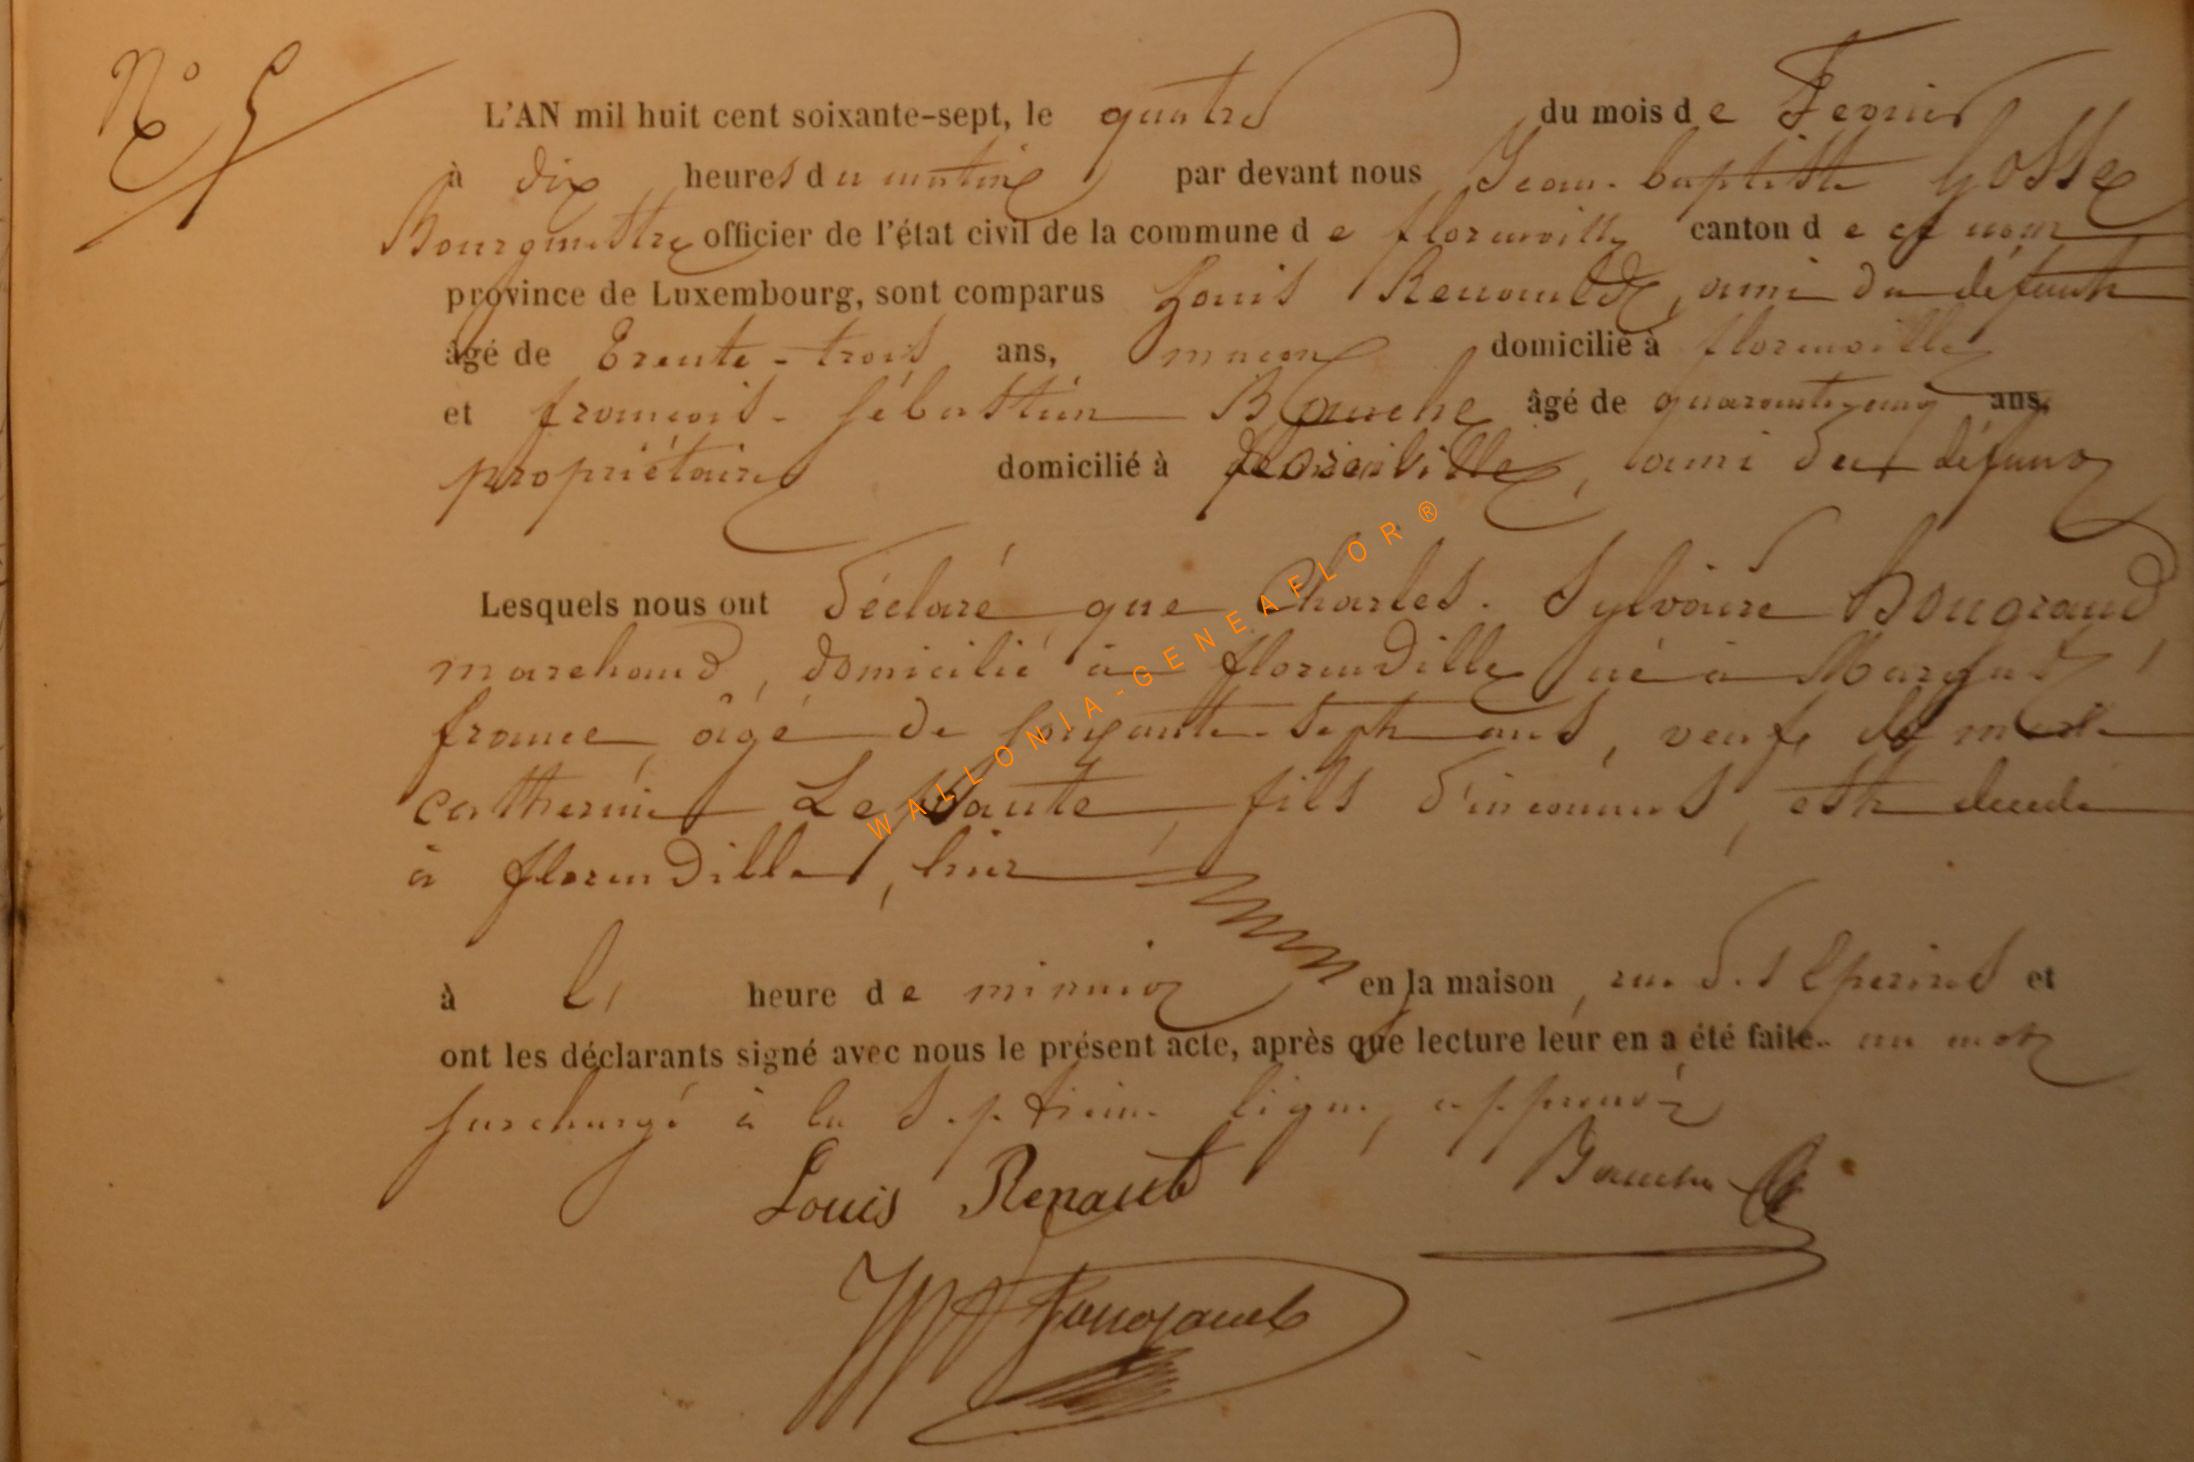 N° 5
L'AN mil huit cent soixante-sept, le quatre du mois de Fevrier
à dix heures du matin par devant nous Jean-baptiste
Bourgmestre officier de l'état civil de la commune de florenville canton de
province de Luxembourg, sont comparus Louis Renauld, ami du défunt
âgé de trente-trois ans, maçon domicilié à florenville
et françois-sébastien Bauche âgé de quarante-cinq ans,
propriétaire domicilié à florenville, ami du défunt
Lesquels nous ont déclaré que Charles. Sylvaire Bougraud
marchand, domicilié à florenville né à Margut,
france, âgé de soixante-sept ans, veuf de marie
catherine Leplante, fils d'inconnus, est decedé
à florenville, hier
à l' heure de minuit en la maison, rue des Eperires et
ont les déclarants signé avec nous le présent acte, après que lecture leur en a été faite. un mot
surchargé à la septième ligne, approuvé
Louis Renault Bauche
WALLONIA-GENEAFLOR®